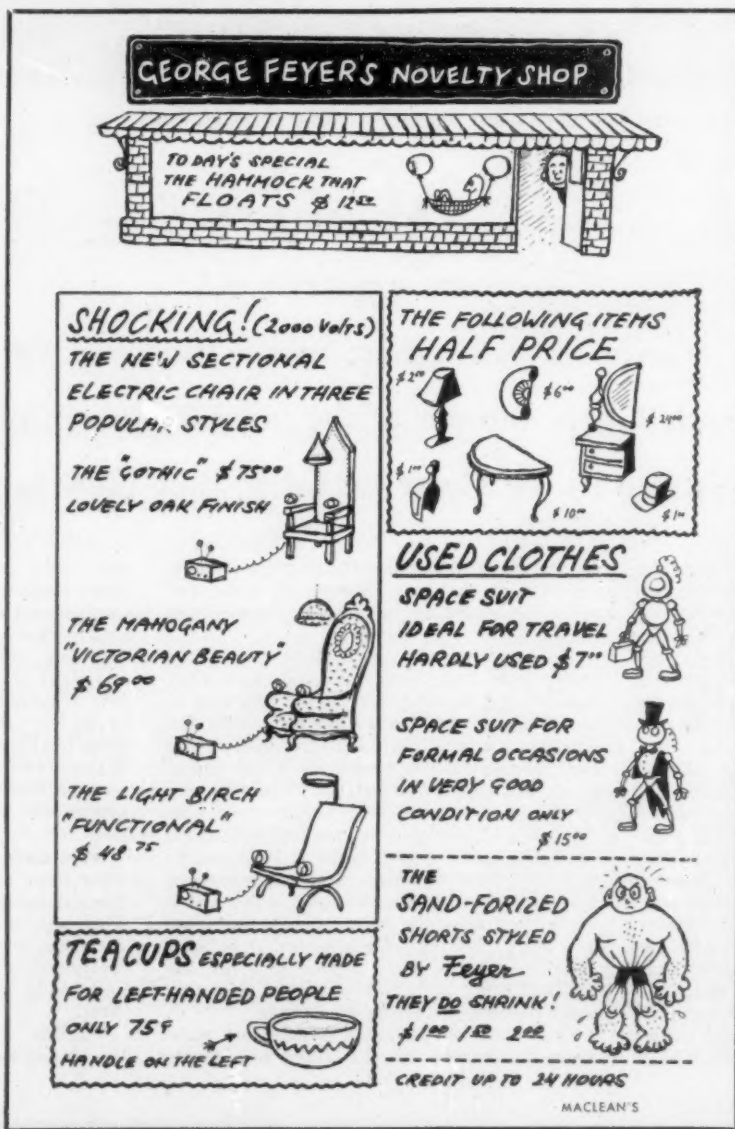 GEORGE FEYER'S NOVELTY SHOP
TO DAY'S SPECIAL
THE HAMMOCK THAT
FLOATS $ 12 50
SHOCKING! (2000 VOLTS)
THE NEW SECTIONAL
ELECTRIC CHAIR IN THREE
POPULAR STYLES
THE "GOTHIC" $ 75 00
LOVELY OAK FINISH
THE MAHOGANY
"VICTORIAN BEAUTY"
$ 69 00
THE LIGHT BIRCH
"FUNCTIONAL"
$ 48 75
TEACUPS ESPECIALLY MADE
FOR LEFT-HANDED PEOPLE
ONLY 75¢
HANDLE ON THE LEFT
THE FOLLOWING ITEMS
HALF PRICE
$ 2 00
$ 6 00
$ 24 00
$ 1 00
$ 10 00
$ 1 00
USED CLOTHES
SPACE SUIT
IDEAL FOR TRAVEL
HARDLY USED $ 7 00
SPACE SUIT FOR
FORMAL OCCASIONS
IN VERY GOOD
CONDITION ONLY
$ 15 00
THE
SAND-FORIZED
SHORTS STYLED
BY Feyer
THEY DO SHRINK!
$ 1 00 1 50 2 00
CREDIT UP TO 24 HOURS
MACLEAN'S